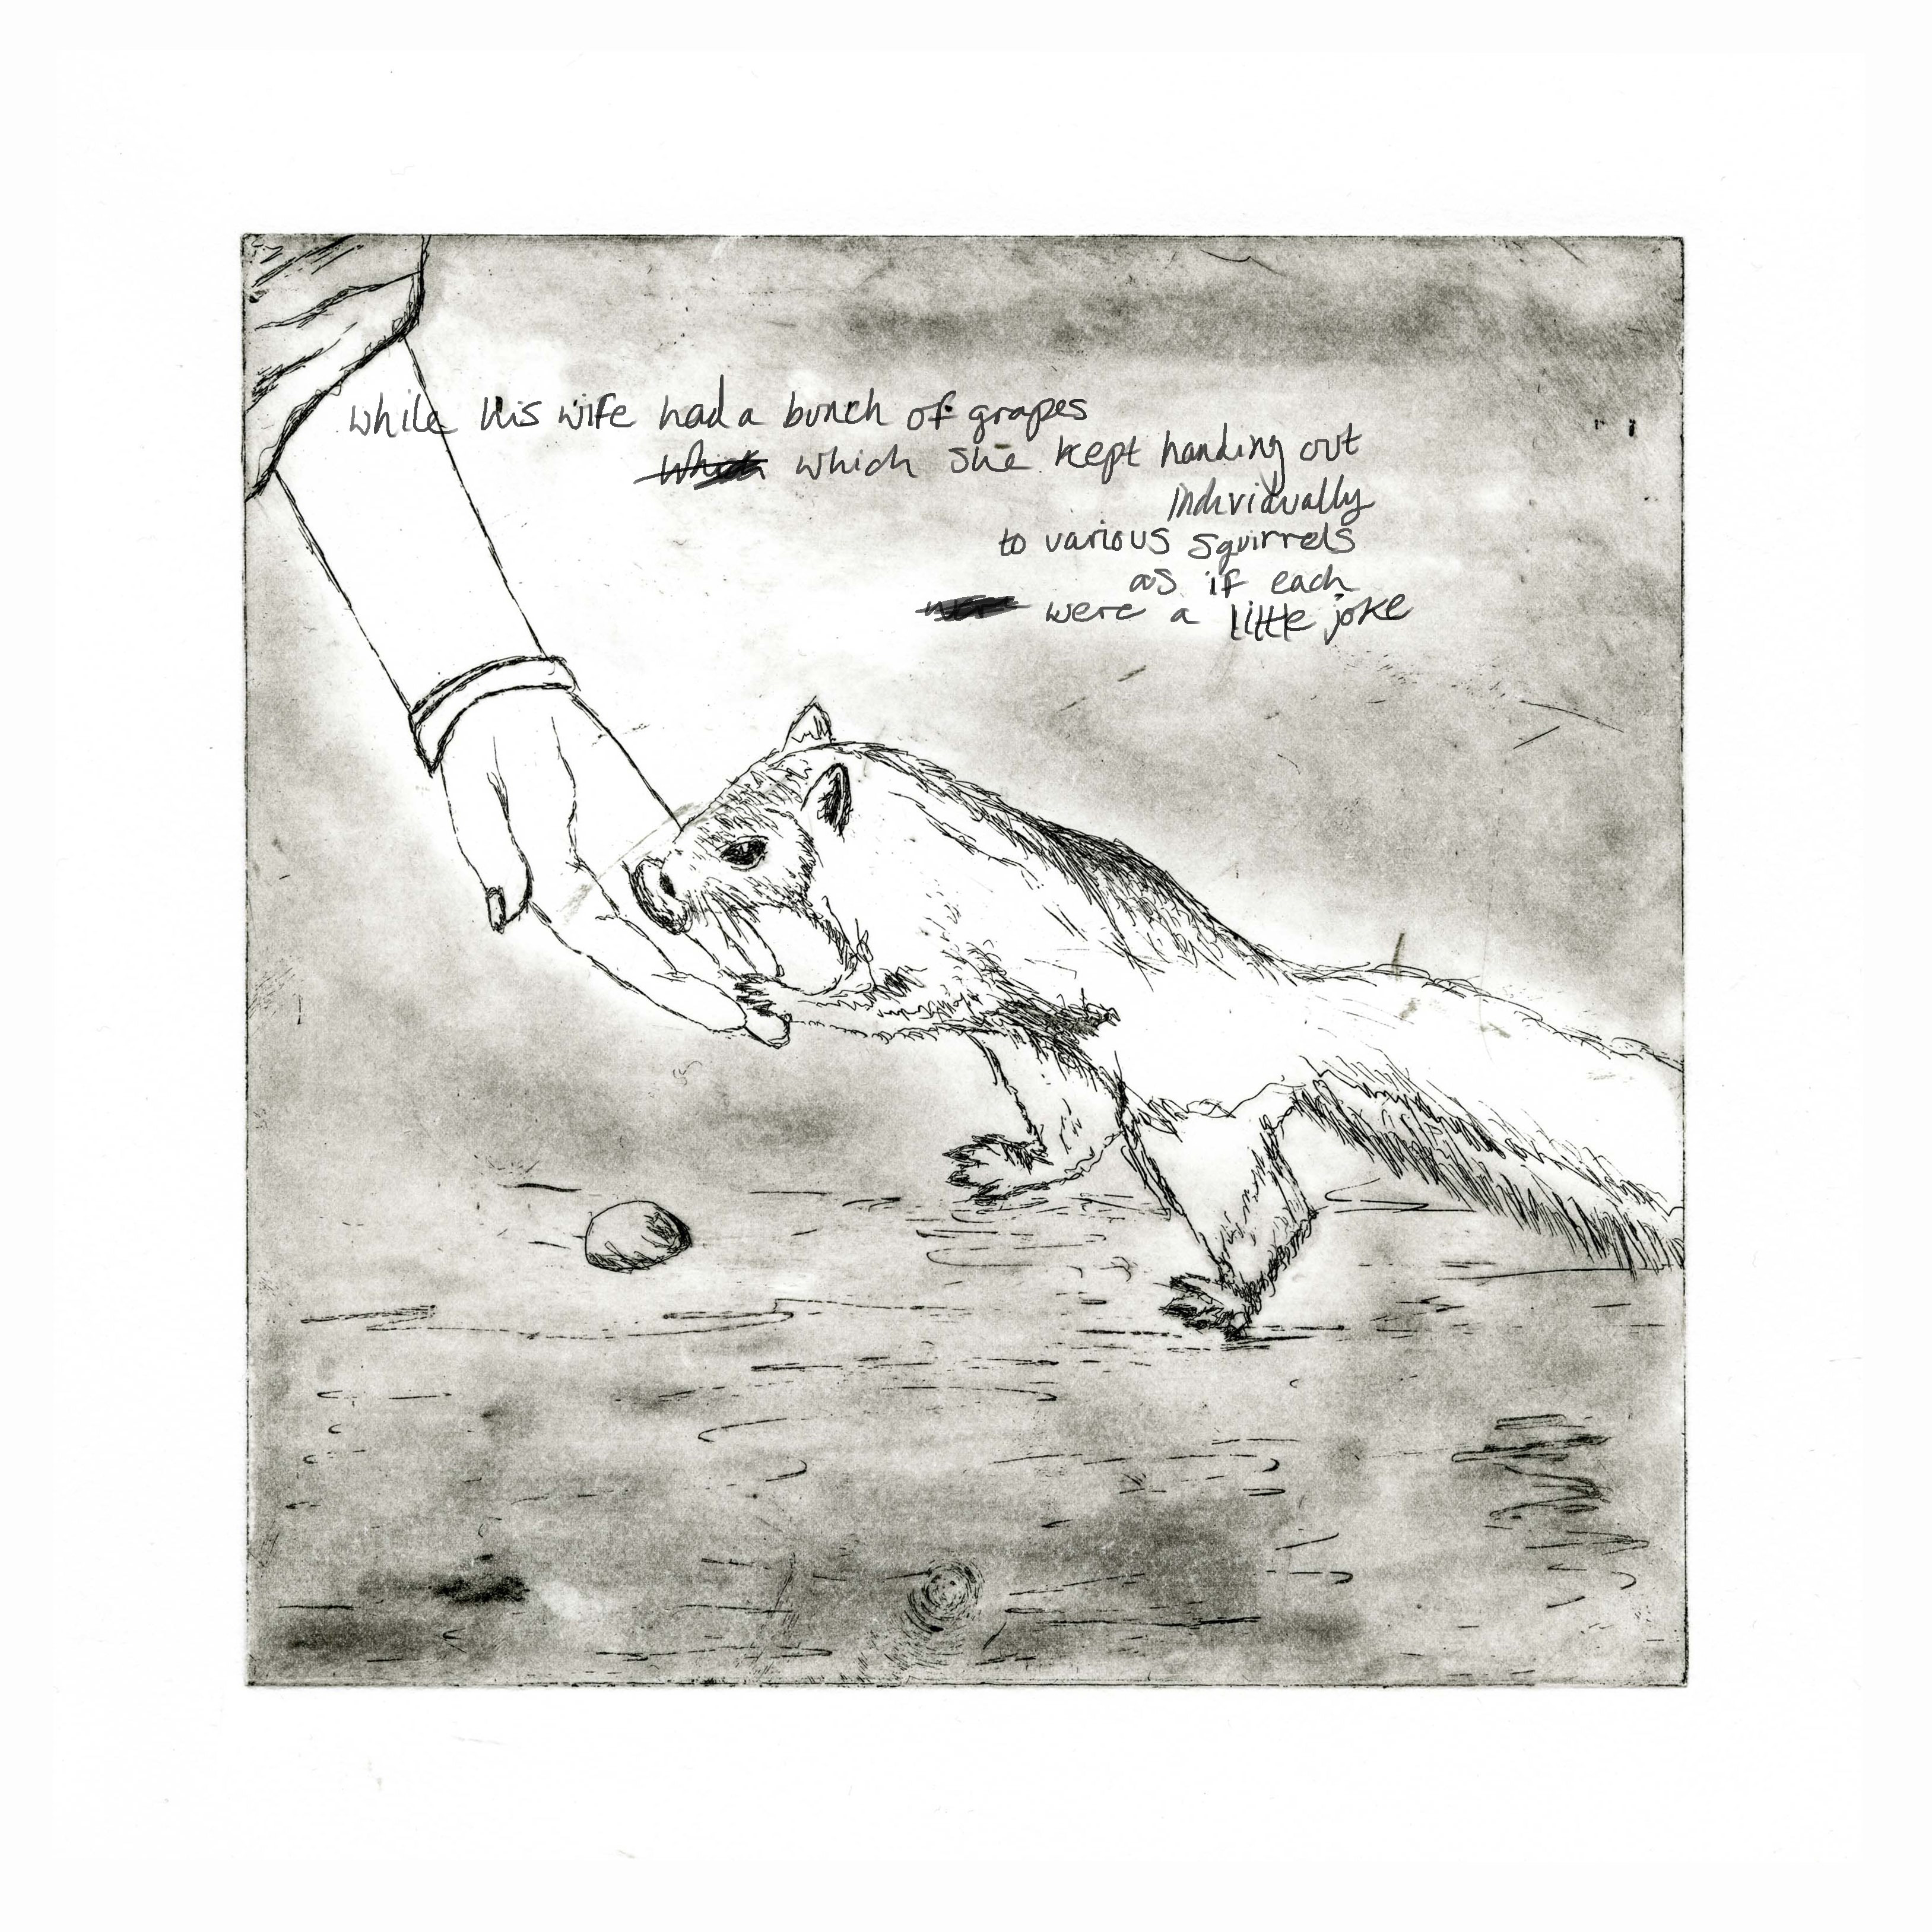 while his wife had a bunch of grapes
which which she kept handing out
individually
to various squirrels
as if each
were were a little joke